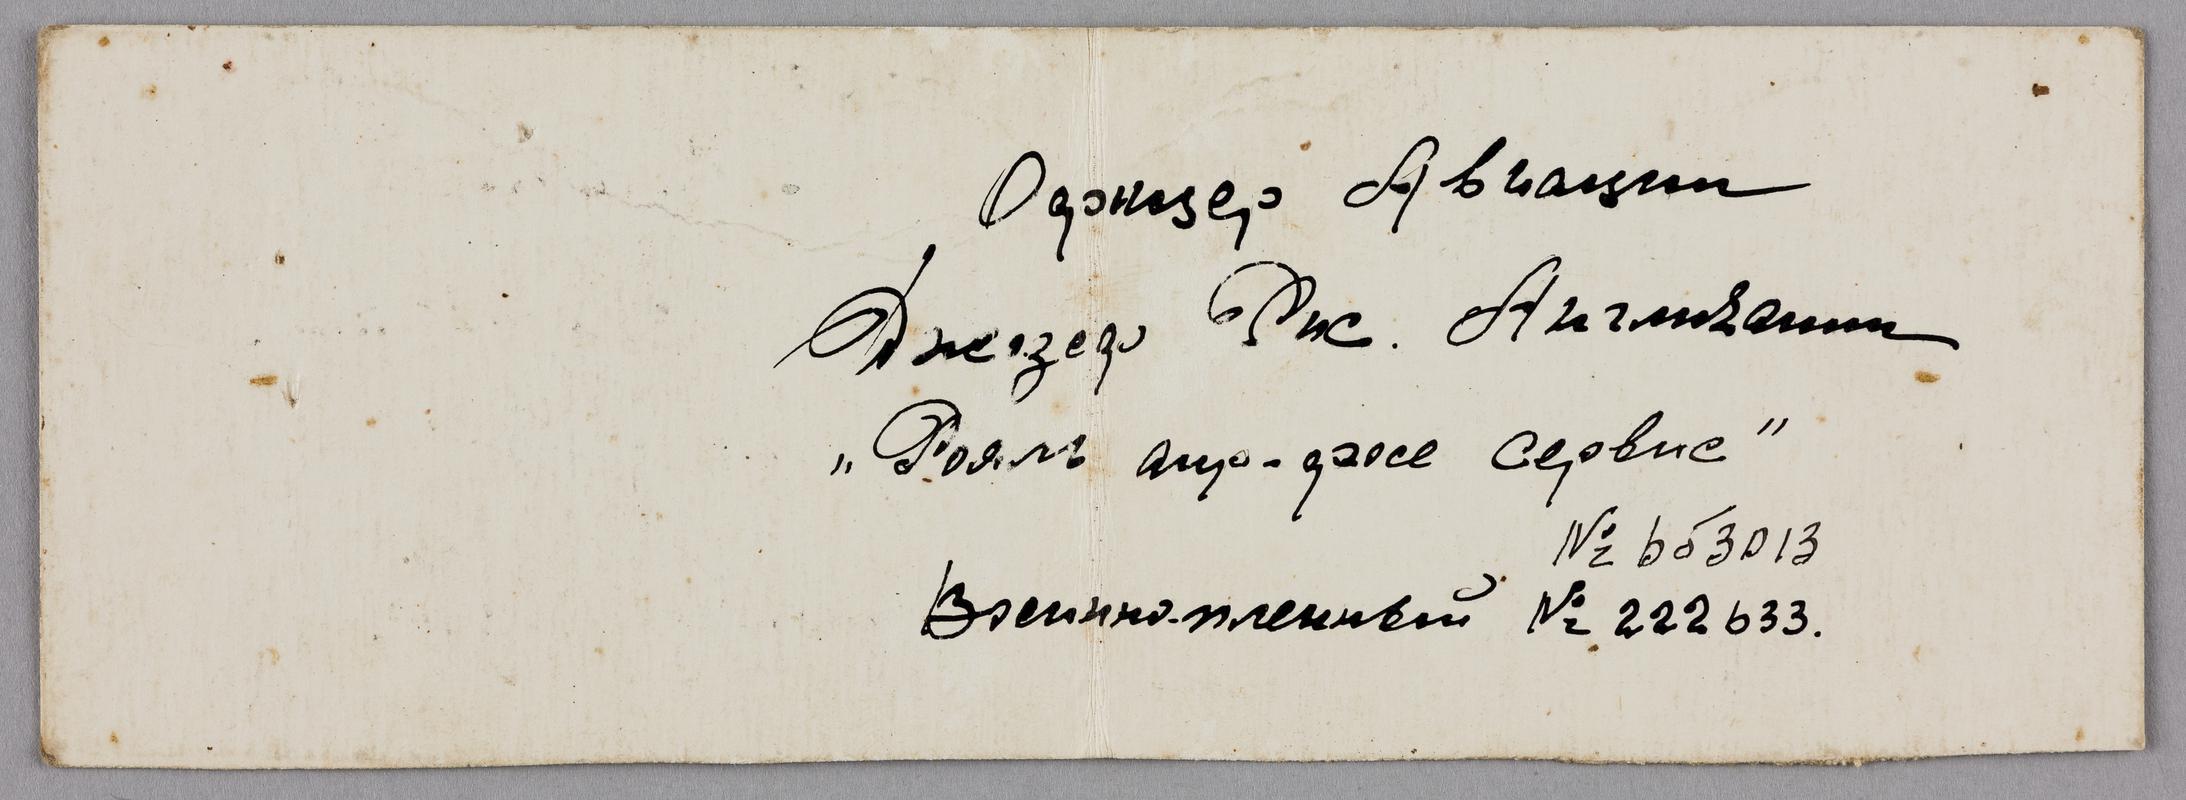 Офицер Авиации
Джозеф Рис. Англичанин
„Рояль аир-форсе сервис"
№ 653013
Военно-пленный № 222633.